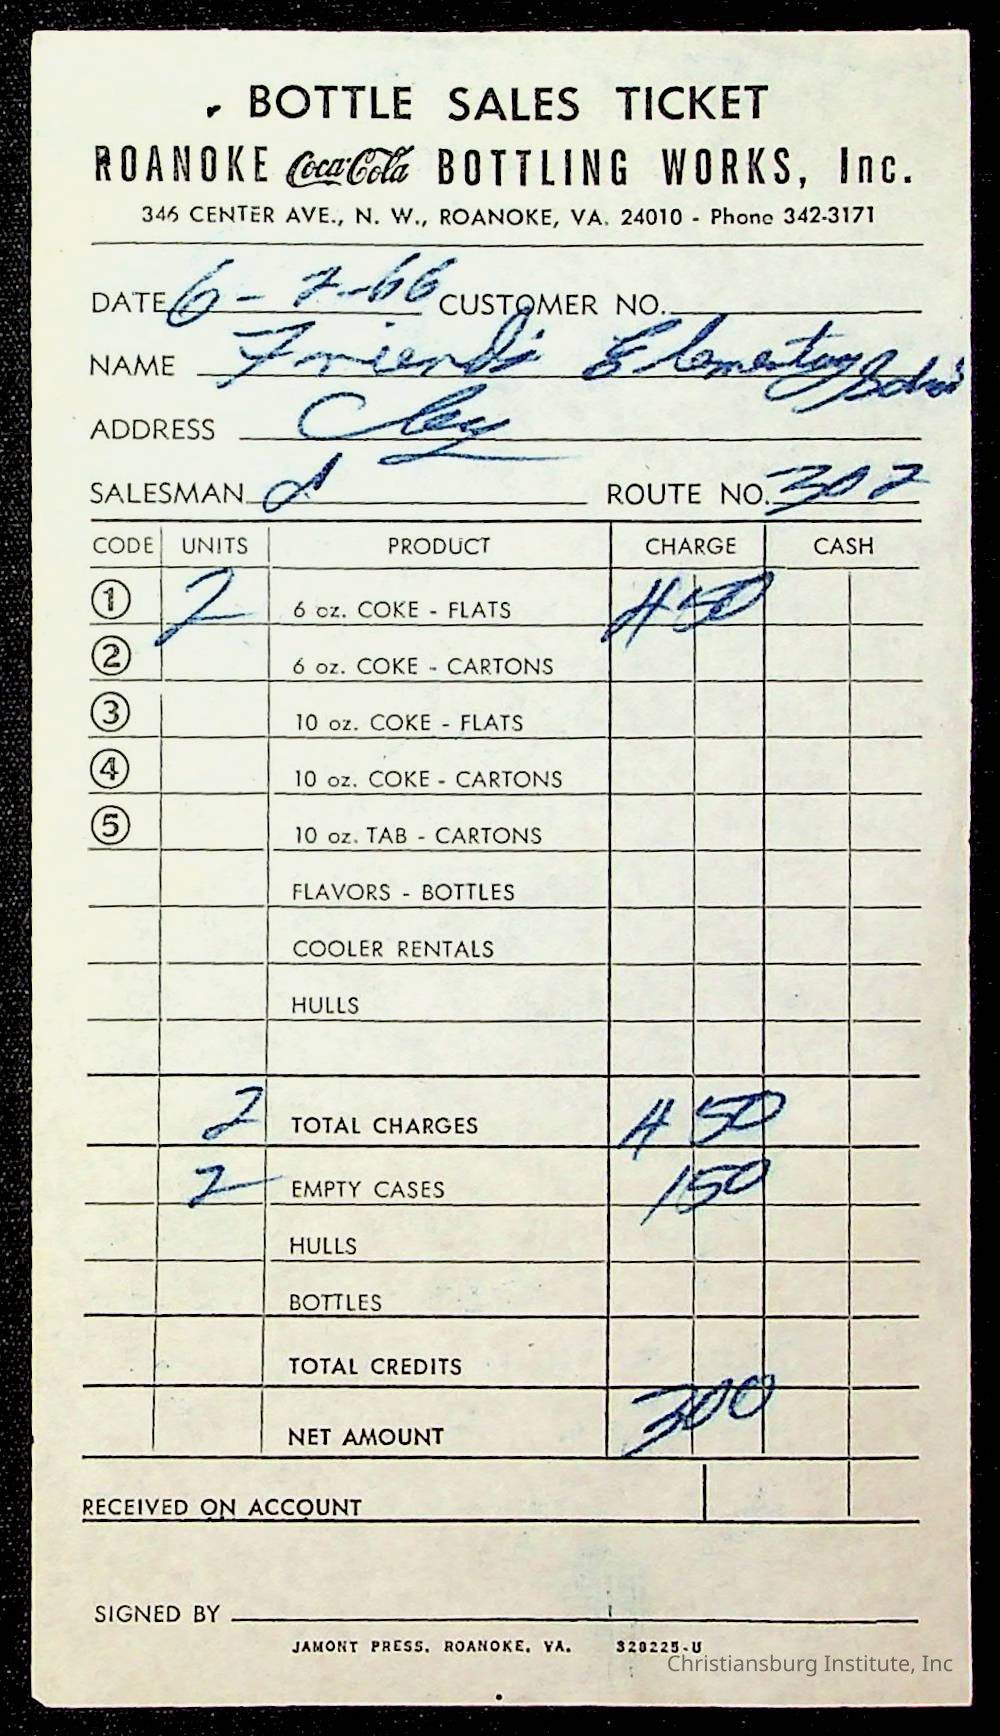 BOTTLE SALES TICKET
ROANOKE Coca-Cola BOTTLING WORKS, Inc.
346 CENTER AVE., N. W., ROANOKE, VA. 24010 - Phone 342-3171
DATE 6-2-66 CUSTOMER NO.
NAME Friends Elementary School
ADDRESS
SALESMAN ROUTE NO. 302
CODE UNITS PRODUCT CHARGE CASH
1 2 6 oz. COKE - FLATS 4 50
2 6 oz. COKE - CARTONS
3 10 oz. COKE - FLATS
4 10 oz. COKE - CARTONS
5 10 oz. TAB - CARTONS
FLAVORS - BOTTLES
COOLER RENTALS
HULLS
2 TOTAL CHARGES 4 50
2 EMPTY CASES 1 50
HULLS
BOTTLES
TOTAL CREDITS
NET AMOUNT 3 00
RECEIVED ON ACCOUNT
SIGNED BY
JAMONT PRESS, ROANOKE, VA. 328225-U
Christiansburg Institute, Inc